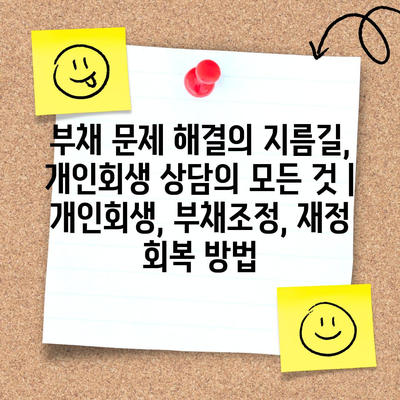 부채 문제 해결의 지름길,
개인회생 상담의 모든 것 |
개인회생, 부채조정, 재정
회복 방법